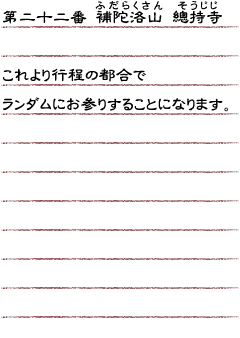 ふだらくさん そうじじ
第二十二番 補陀洛山 總持寺
これより行程の都合で
ランダムにお参りすることになります。